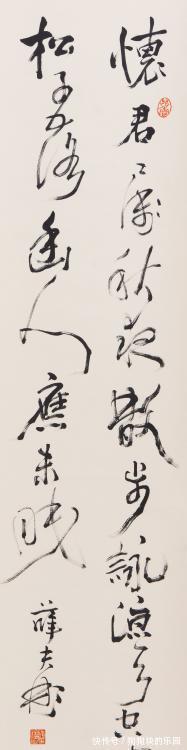 懷君屬秋夜散步詠涼天空山
松子落幽人應未眠
薛夫彬
快传号